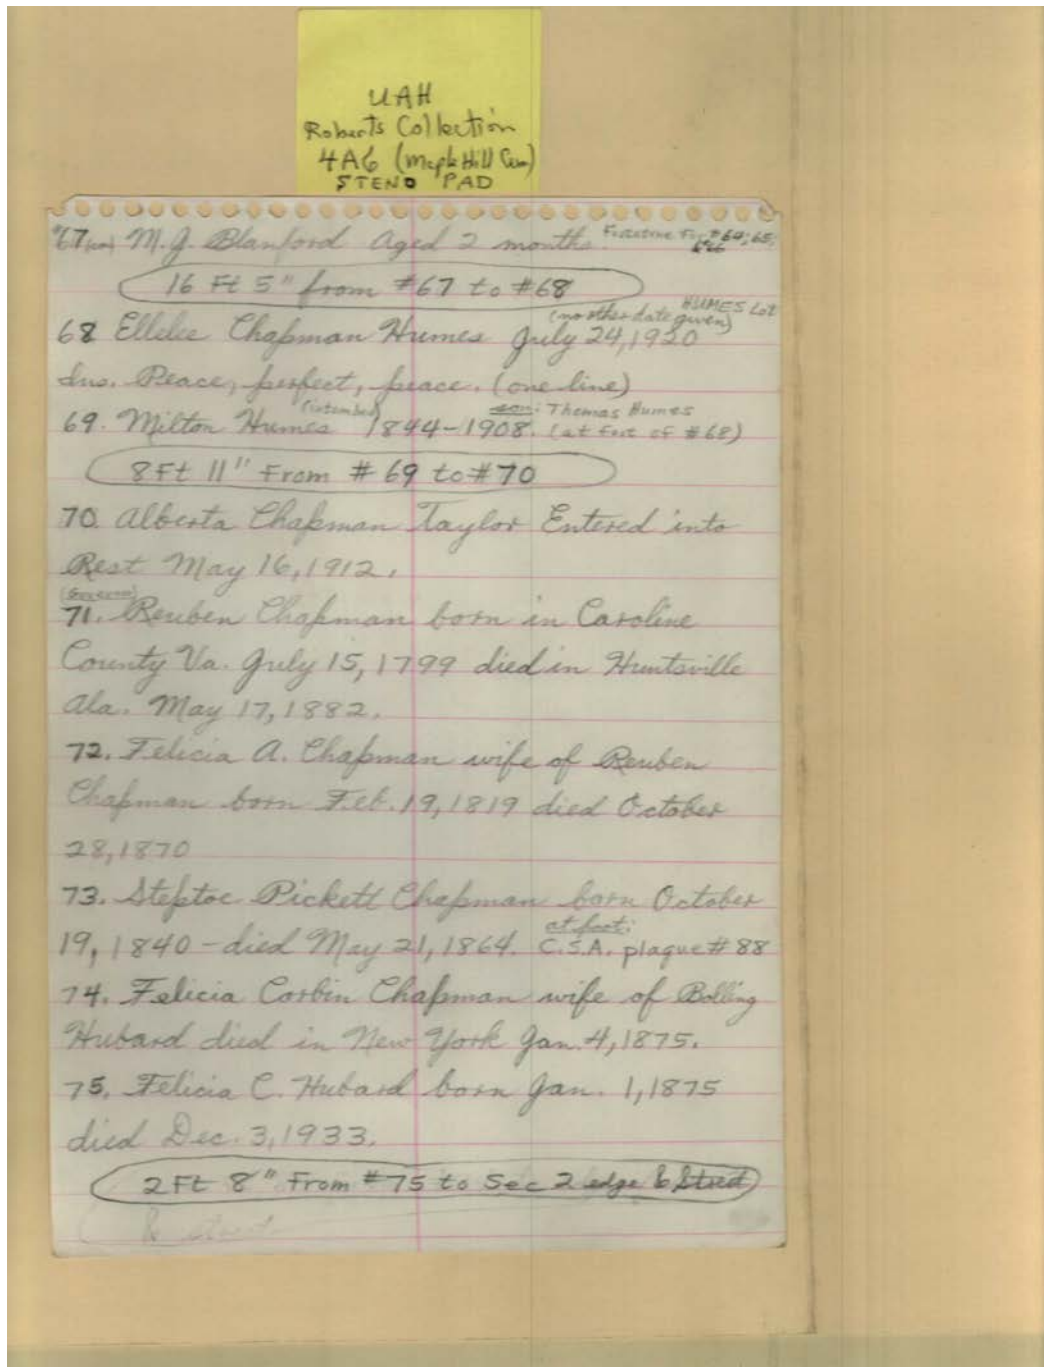 UAH
Roberts Collection
4A6 (Maple Hill Cem)
STENO PAD
#67 M.J. Blanford Aged 2 months. #64; 65;
16 Ft 5" from #67 to #68
HUMES Lot
(no other date given)
68 Ellelee Chapman Humes July 24, 1920
Ins. Peace, perfect, peace. (one line)
son: Thomas Humes
69. Milton Humes 1844-1908. (at foot of #68)
8Ft 11" From #69 to #70
70. Alberta Chapman Taylor Entered into
Rest May 16, 1912.
(Governor)
71. Reuben Chapman born in Caroline
County Va. July 15, 1799 died in Huntsville
Ala. May 17, 1882.
72. Felicia A. Chapman wife of Reuben
Chapman born Feb. 19, 1819 died October
28, 1870
73. Steptoe Pickett Chapman born October
at foot:
19, 1840 - died May 21, 1864. C.S.A. plaque #88
74. Felicia Corbin Chapman wife of Bolling
Hubard died in New York Jan. 4, 1875.
75. Felicia C. Hubard born Jan. 1, 1875
died Dec. 3, 1933.
2 Ft 8" From #75 to Sec 2 edge & Street
& street